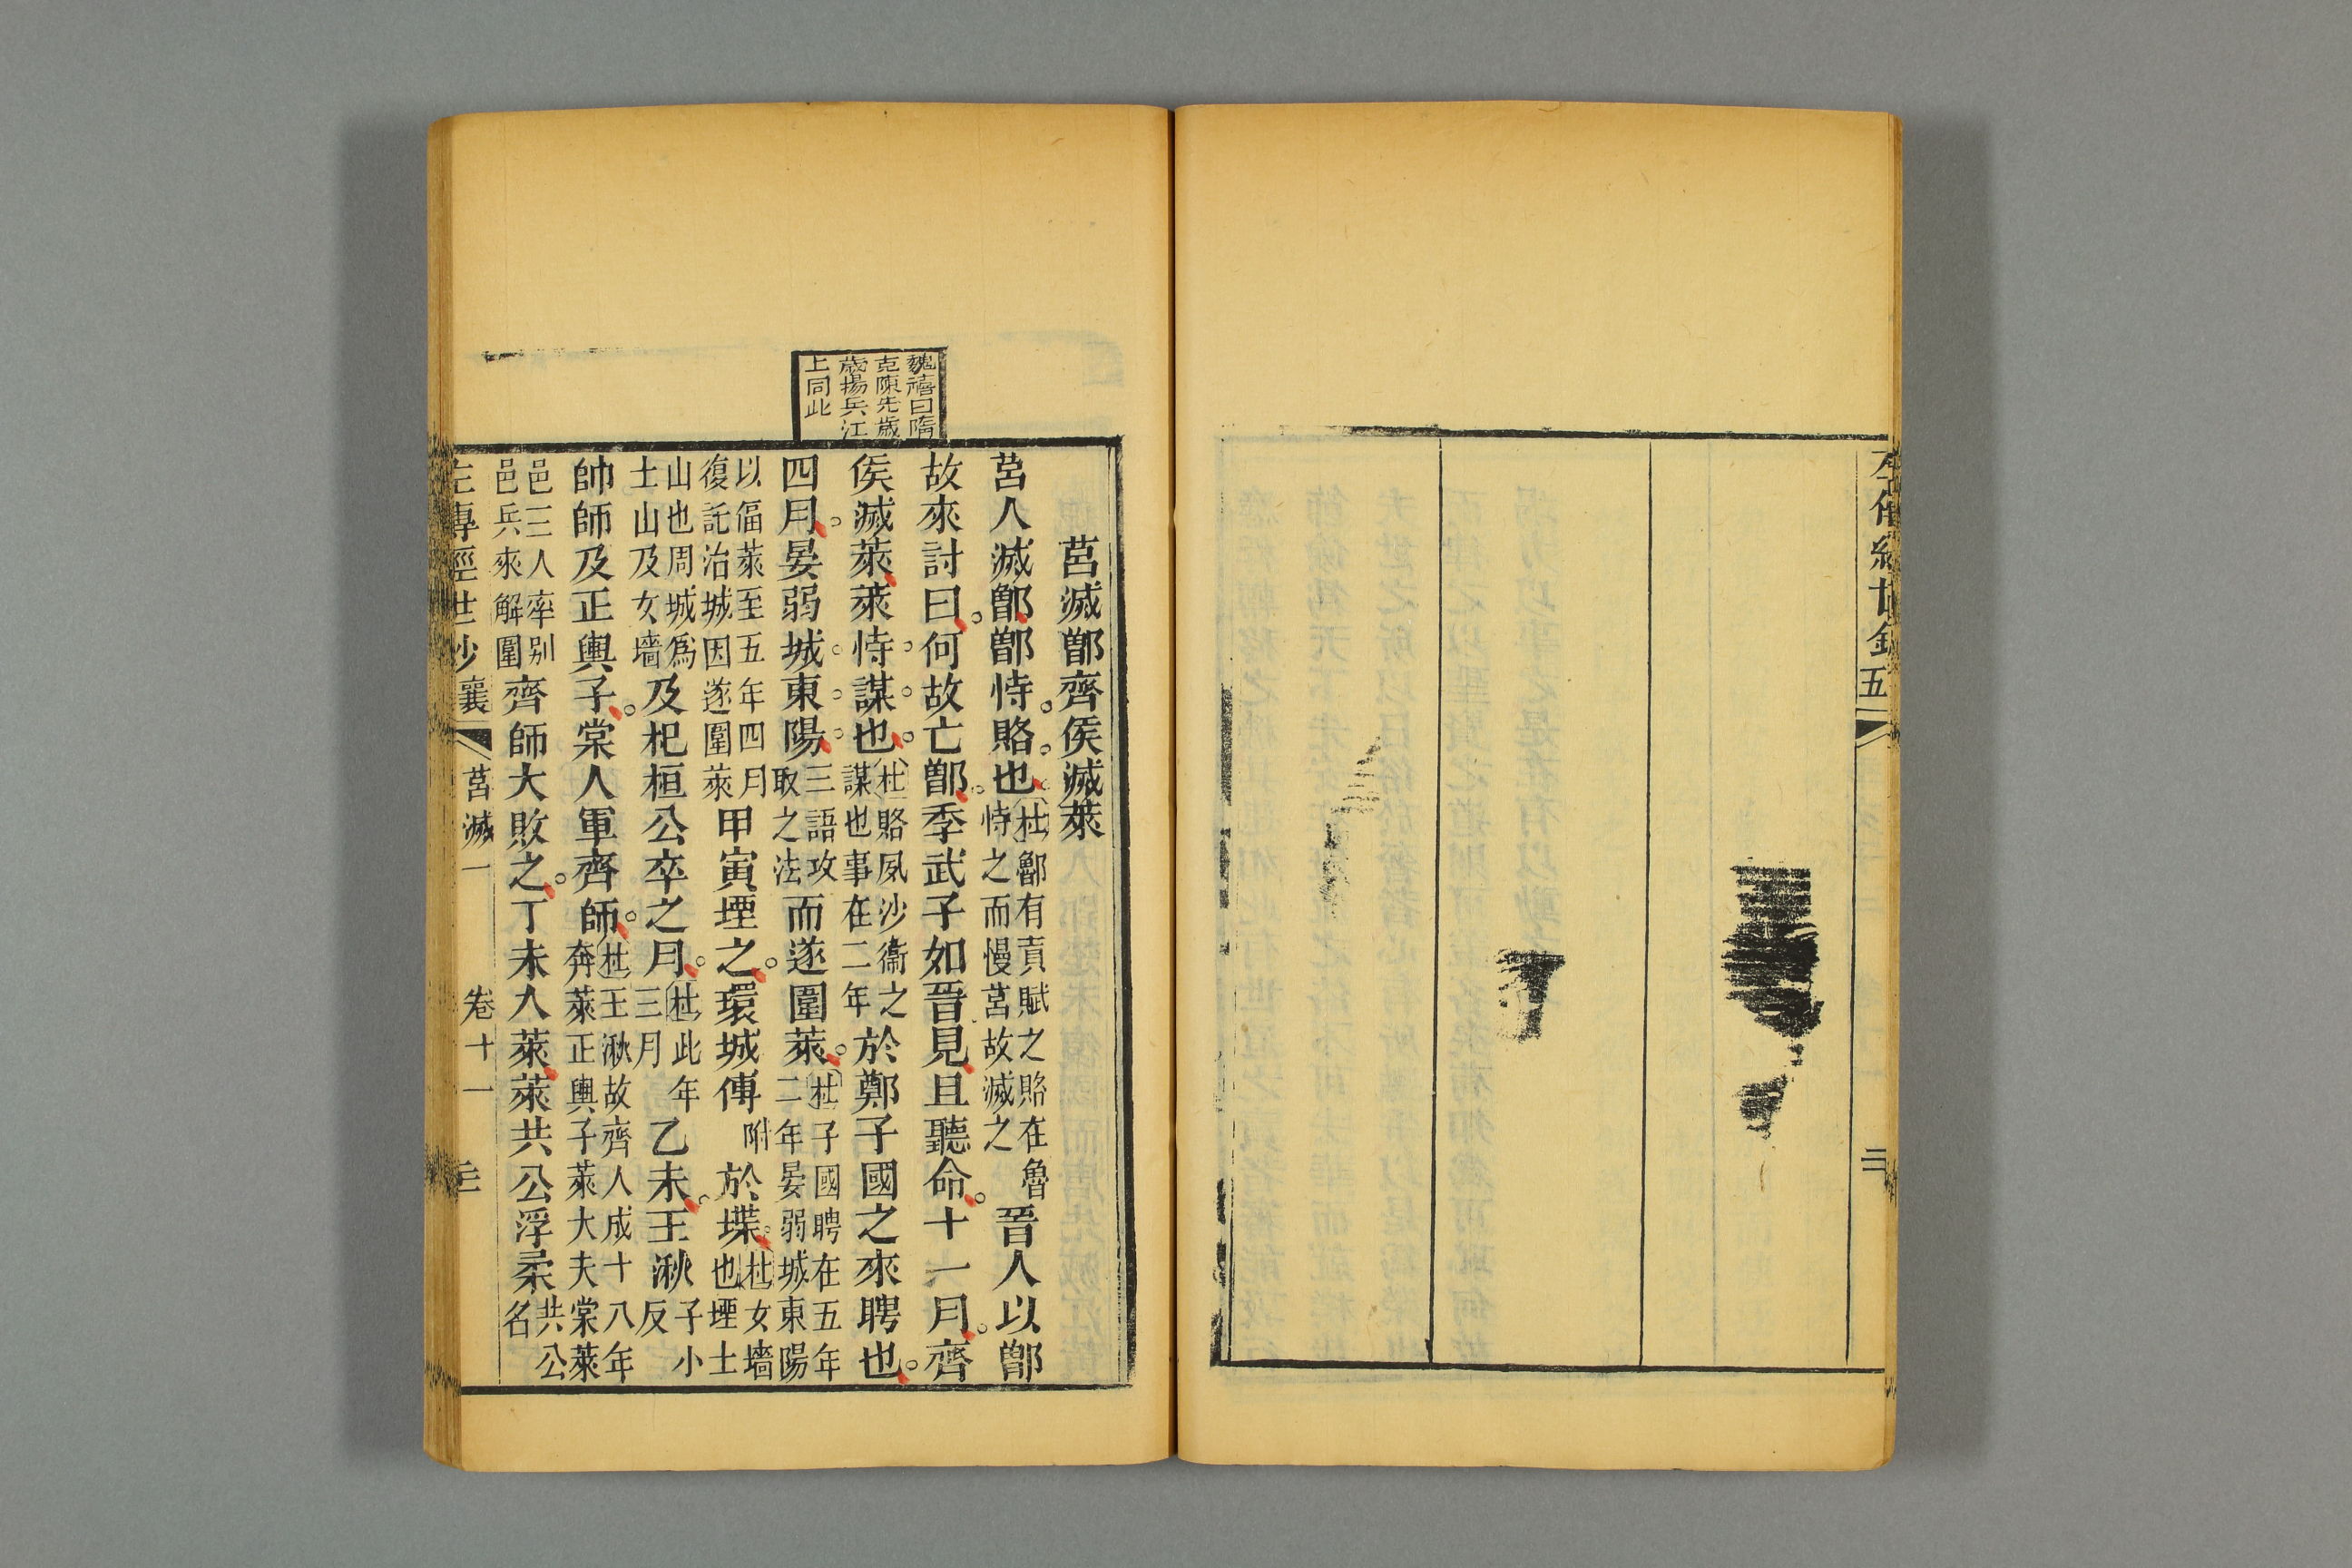 左傳經世鈔 五
二
魏禧曰隋
克陳先歲
歲揚兵江
上同此
莒滅鄫齊侯滅萊
莒人滅鄫鄫恃賂也杜鄫有貢賦之賂在魯恃之而慢莒故滅之晉人以鄫
故來討曰何故亡鄫季武子如晉見且聽命十一月齊
侯滅萊萊恃謀也杜賂夙沙衞之謀也事在二年於鄭子國之來聘也
四月晏弱城東陽三語攻取之法而遂圍萊杜子國聘在五年二年晏弱城東陽
以偪萊至五年四月復託治城因遂圍萊甲寅堙之環城傅附於堞杜女墻也堙土
山也周城爲土山及女墻及杞桓公卒之月杜此年三月乙未王湫子小反
帥師及正輿子棠人軍齊師杜王湫故齊人成十八年奔萊正輿子萊大夫棠萊
邑三人率别邑兵來解圍齊師大敗之丁未入萊萊共公浮柔共公名
左傳經世鈔 襄 莒滅一 卷十一 三